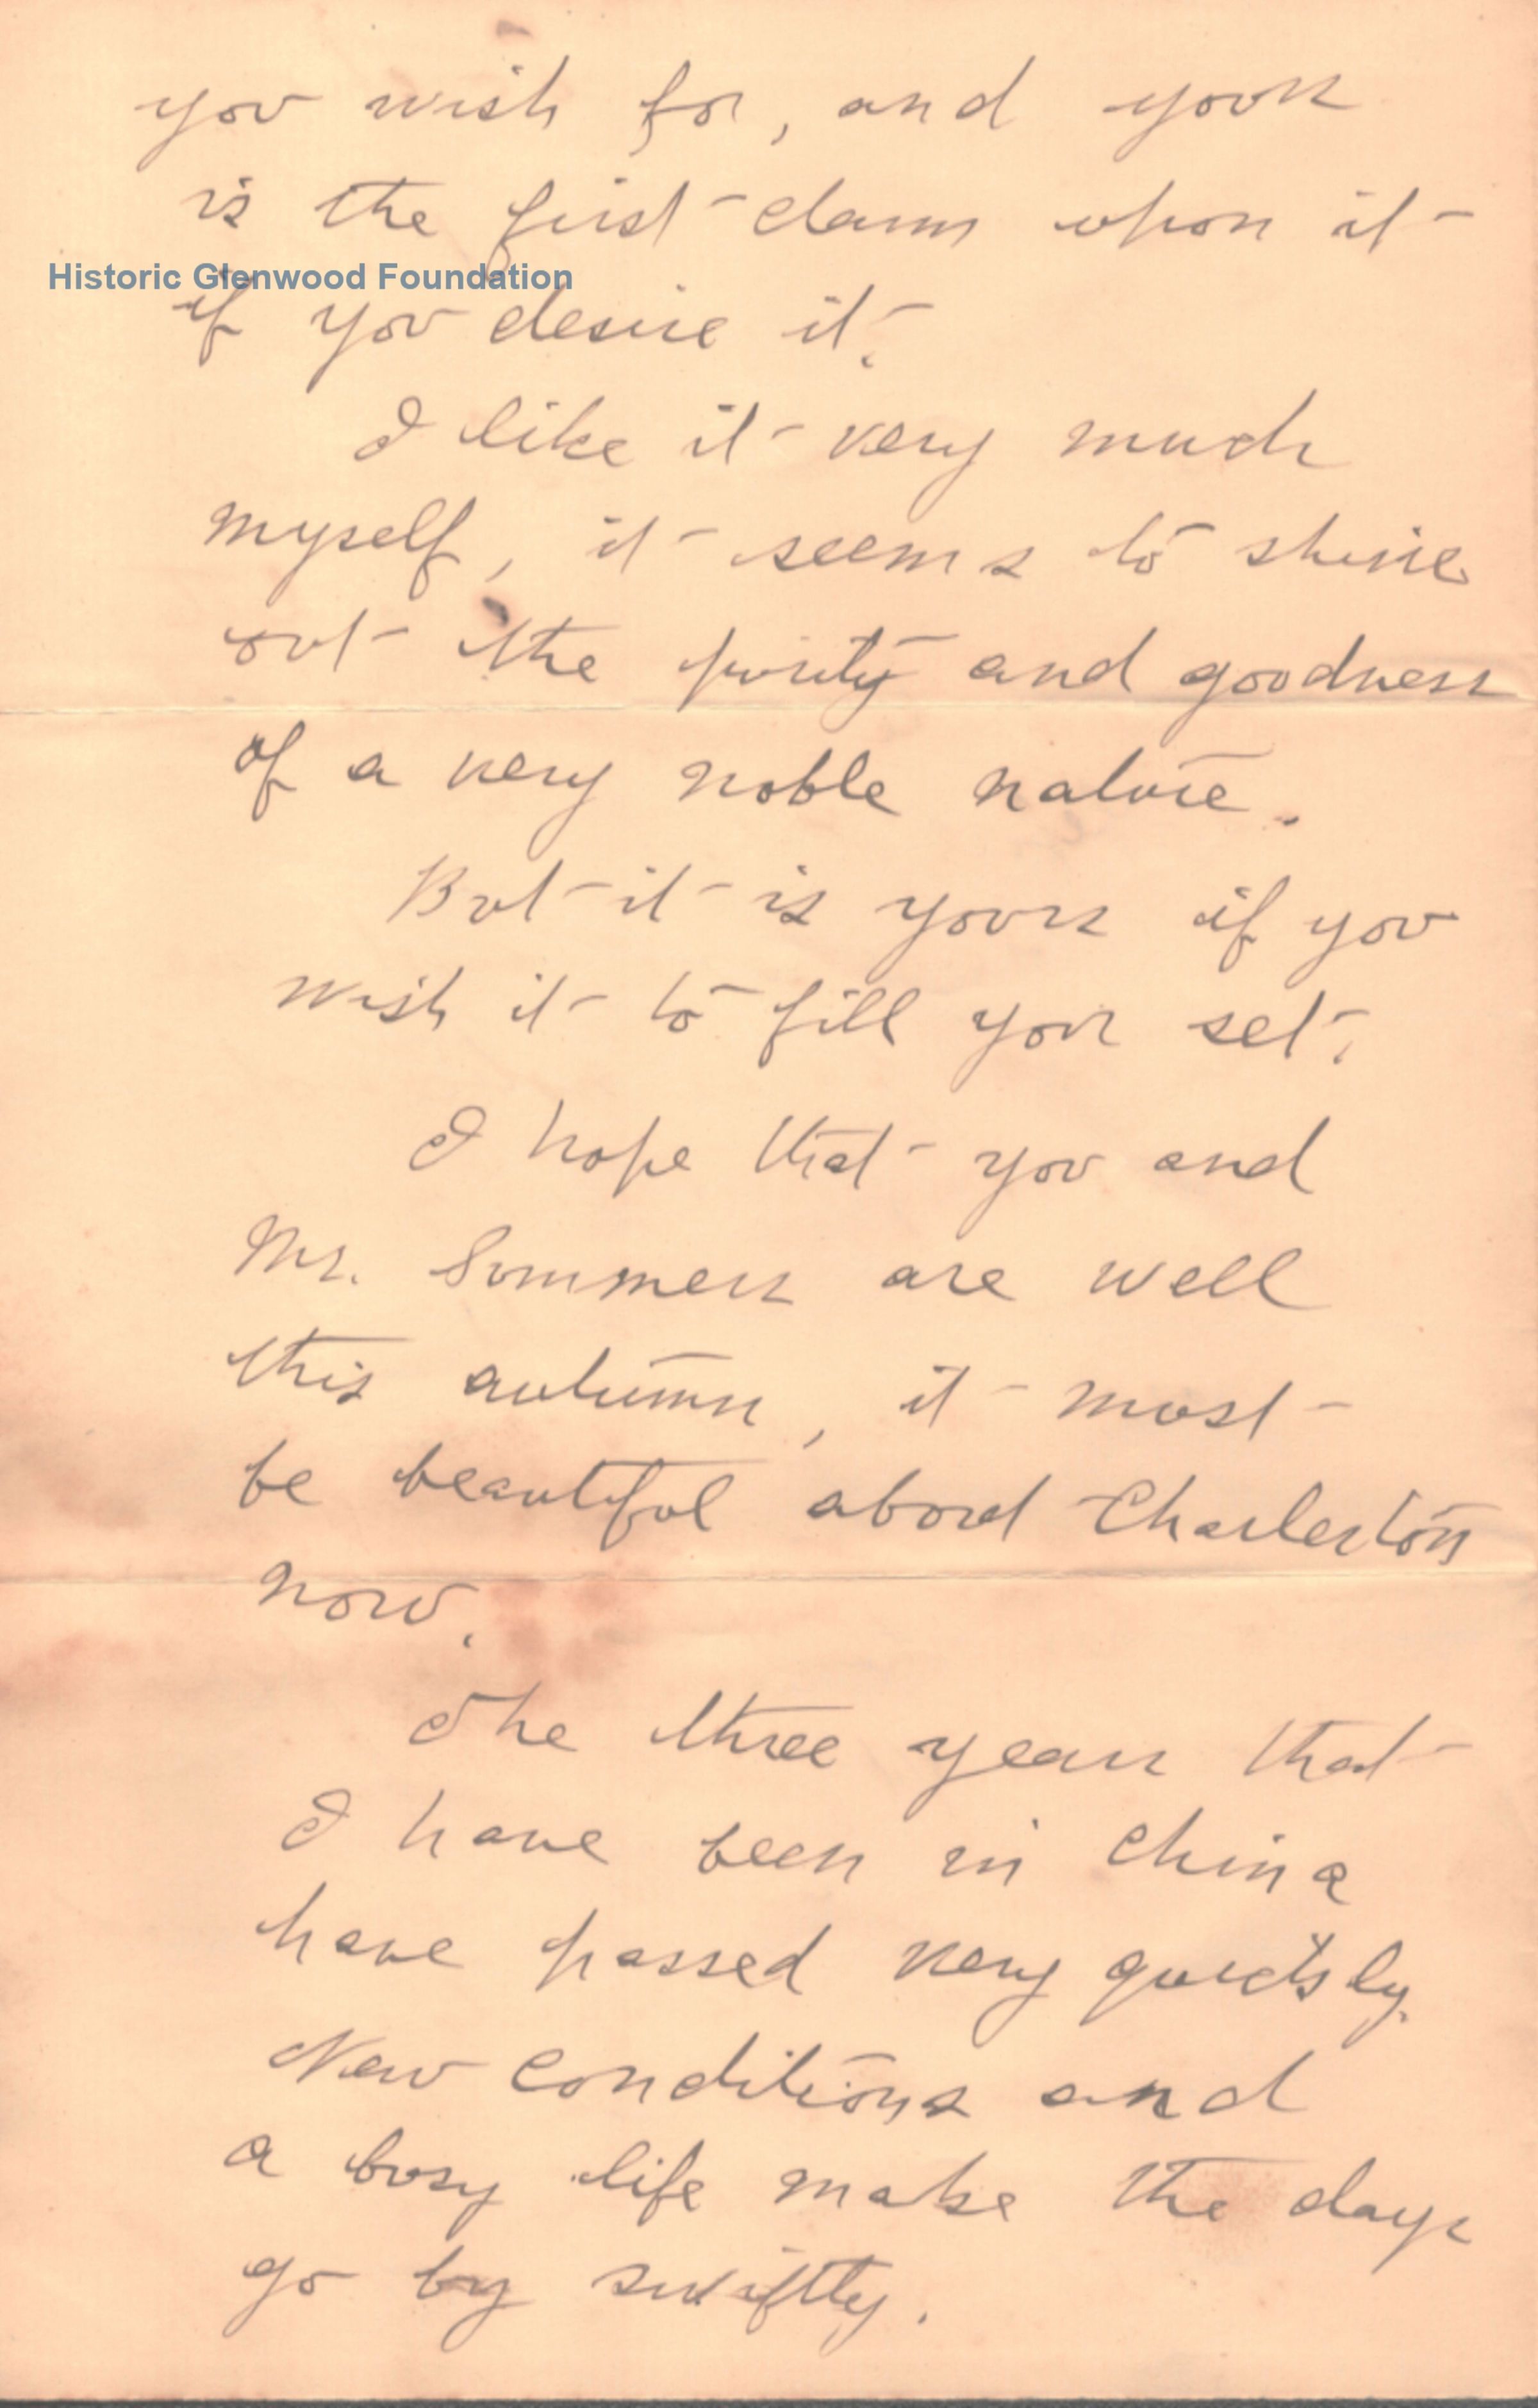 you wish for, and yours
is the first claim upon it
Historic Glenwood Foundation
if you desire it.
I like it very much
myself, it seems to shine
out the purity and goodness
of a very noble nature.
But it is yours if you
wish it to fill your set.
I hope that you and
Mr. Sommers are well
this autumn, it must
be beautiful about Charleston
now.
The three years that
I have been in China
have passed very quickly.
New conditions and
a busy life make the days
go by swiftly.